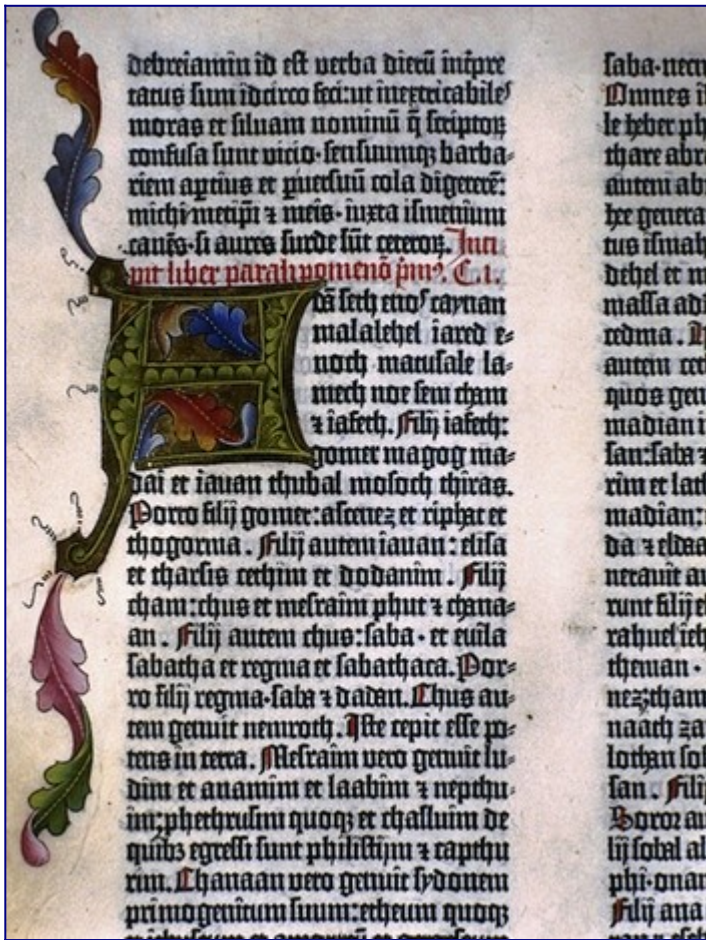 debreiamin id est verba dierū inṫpre
tatus sum idcirco feci: ut inextricabiles
moras et siluam nominū q̄ scriptoꝝ
confusa sunt vicio · sensuumqꝫ barba-
riem apcius et ꝑ versuū cola digererē:
michimetip̄i ⁊ meis · iuxta ismenium
canēs · si aures surde sūt ceteroꝝ. Inci
pit liber paralipomenō prim9. C. i.
Adā seth enos caynan
malalehel iared e-
noch matusale la-
mech noe sem cham
⁊ iafeth. Filij iafeth:
gomer magog ma-
dai et iauan thubal mosoch thiras.
Porro filij gomer: ascenez et riphat et
thogorma. Filij autem iauan: elisa
et tharsis cethim et dodanim. Filij
cham: chus et mesraim phut ⁊ chana-
an. Filij autem chus: saba · et euila
sabatha et regma et sabathaca. Por-
ro filij regma · saba ⁊ dadan. Chus au-
tem genuit nemroth. Iste cepit esse po-
tens in terra. Mesraim vero genuit lu-
dim et anamim et laabim ⁊ nepthu-
im: phethrusim quoqꝫ et chasluim de
quibꝫ egressi sunt philistijm ⁊ capthu
rim. Chanaan vero genuit sydonem
primogenitum suum: etheum quoqꝫ
saba · necn
Omnes i
le heber ph
thare abra
autem ab
hee genera
tus ismah
dehel et m
massa ad
cedma. H
autem cet
quos gen
madian i
san: saba ⁊
rim et lat
madian:
da ⁊ eldaa
nerauit au
runt filij e
rahuel ieh
theman ·
nez: tham
naath za
lothan so
san. Filij
Soror au
lij sobal al
phi · onam
Filij ana